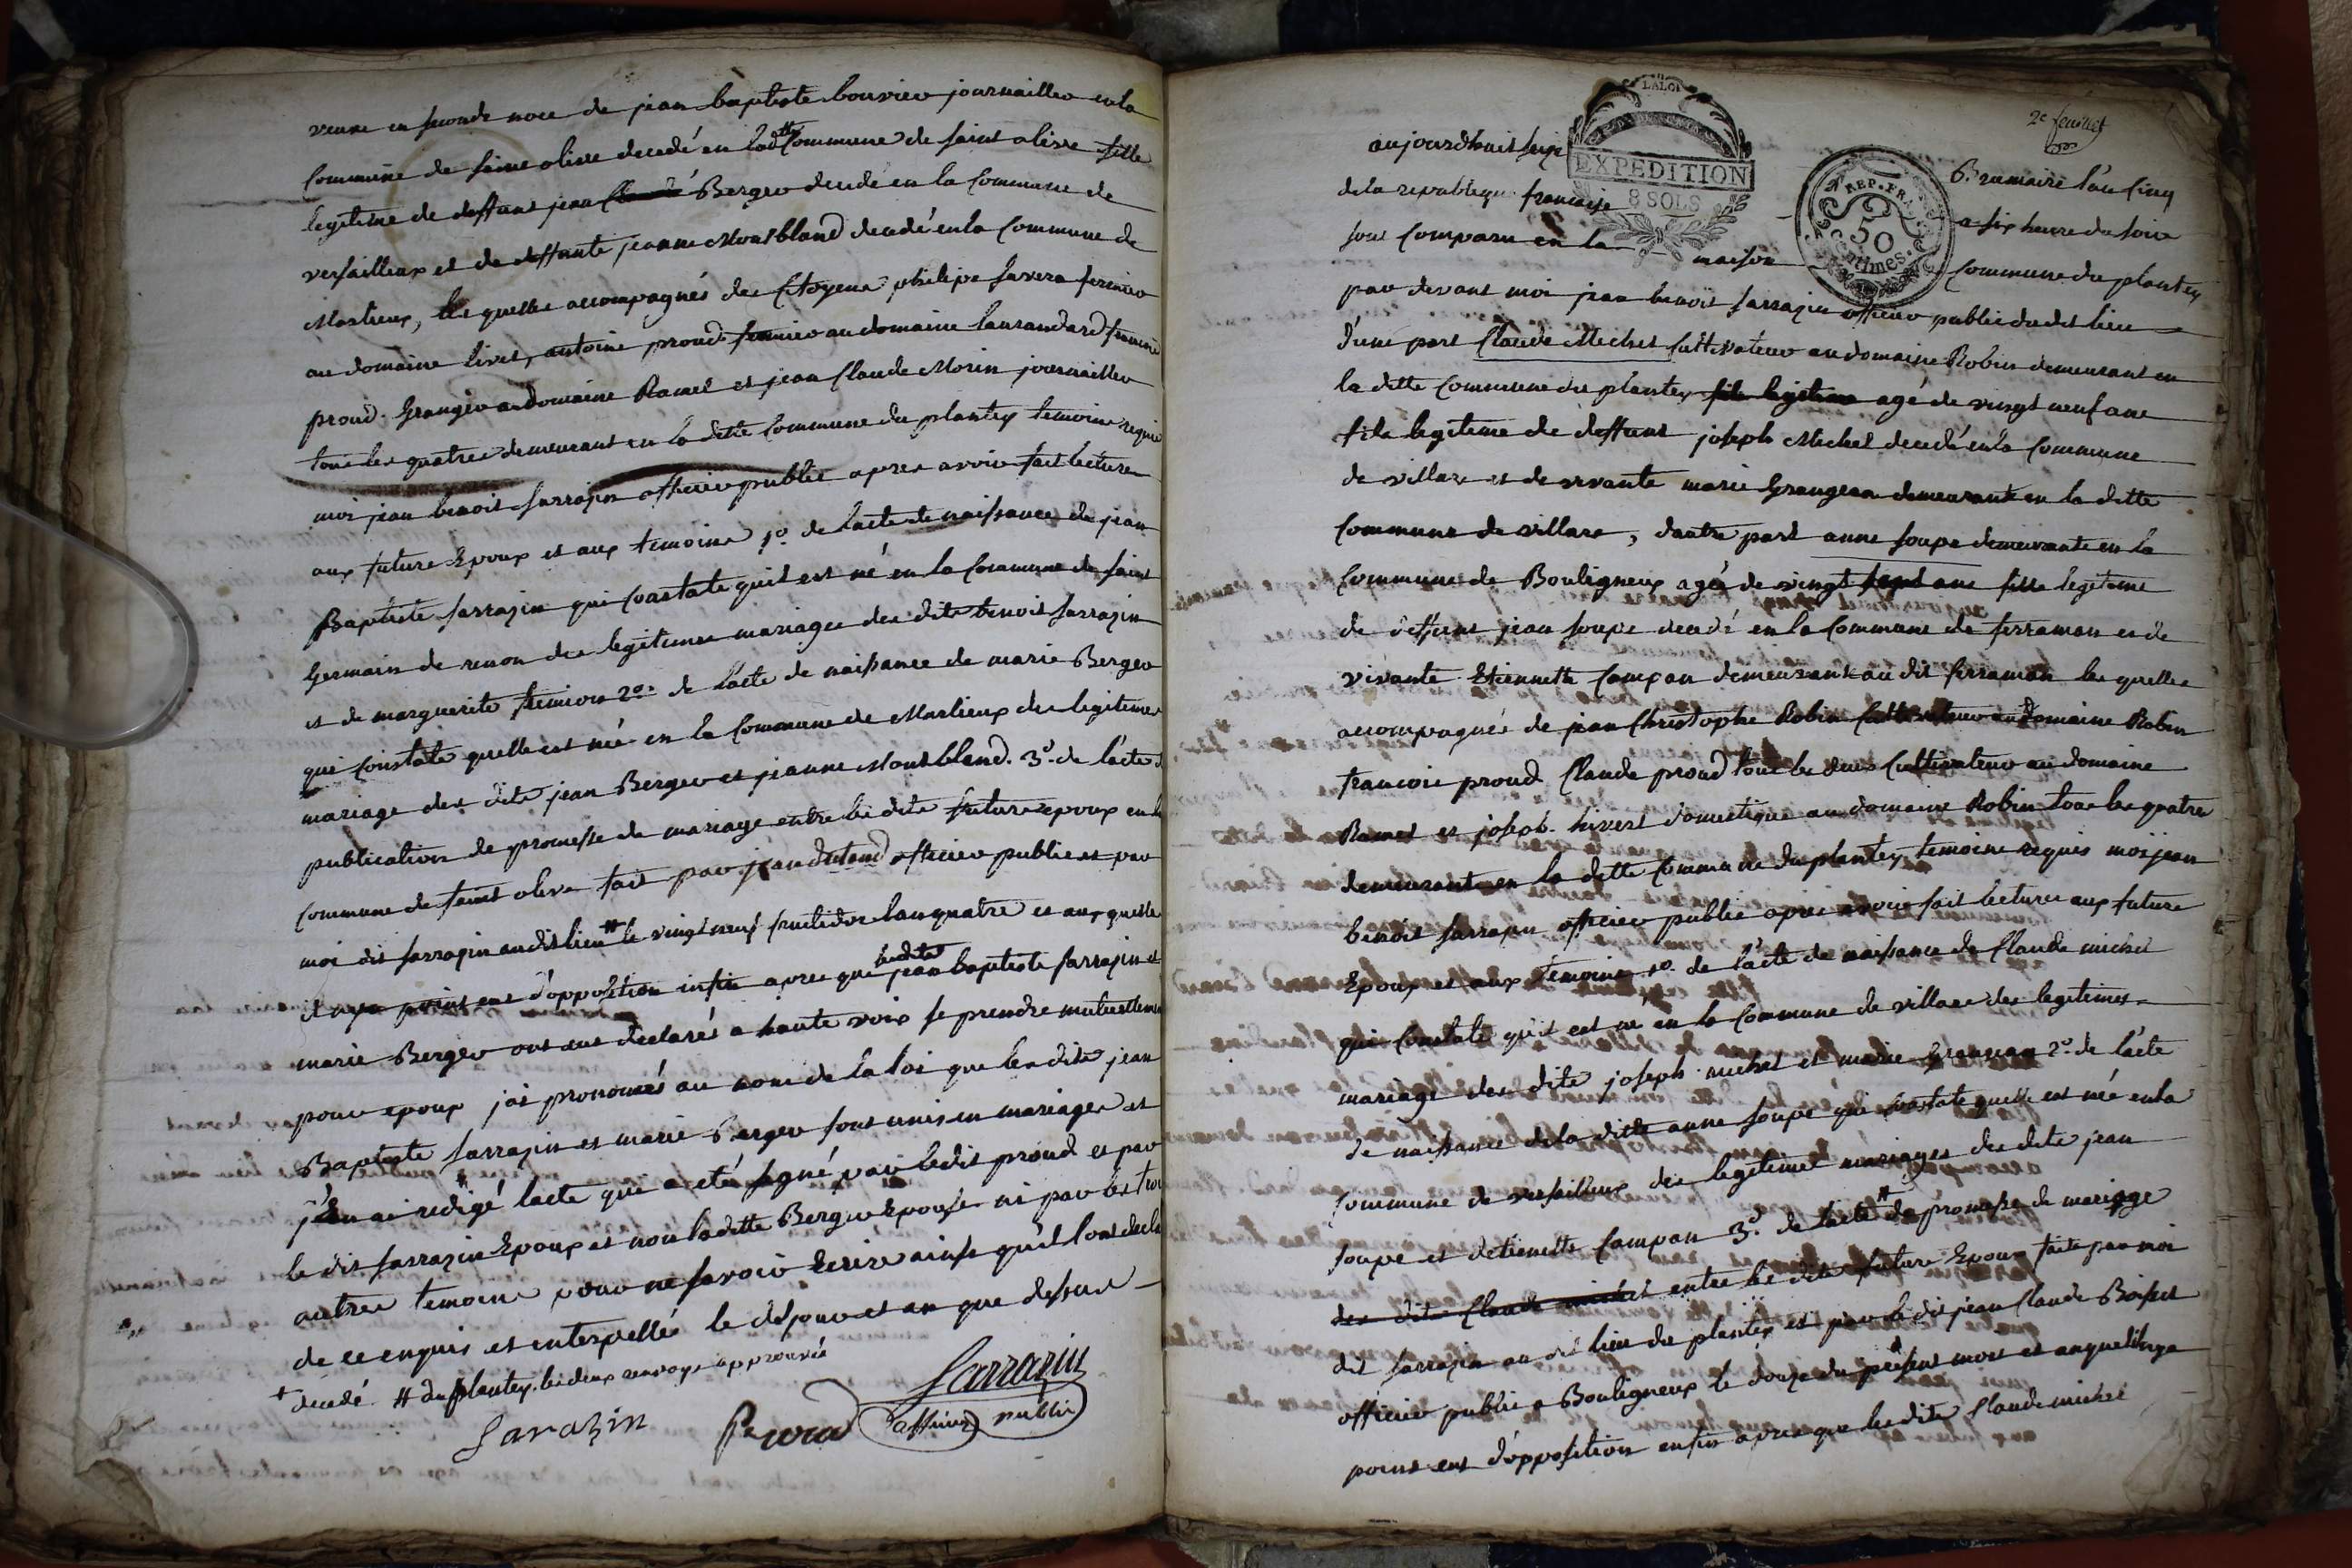 veuve en seconde noce de jean baptiste bouvier journaillier en la
Commune de saint olive decedé en lad tte Commune de saint olive fille
legitime de deffunt jean Berger decedé en la Commune de
versailleux et de deffunte jeanne Montbland decedé en la Commune de
Marlieux, lesquelles accompagnés des Citoyens philipe favera fermier
au domaine livet, antoine proud fermier au domaine laurandard francois
proud. Granger au domaine Ramet et jean Claude Morin journaillier
tous les quatres demeurant en la ditte Commune du plantey temoins requis
moi jean benoit sarrazin officier public apres avoir fait lecture
aux futurs Epoux et aux temoins 1o. de lacte de naissance de jean
Baptiste sarrazin qui constate quil est né en la Commune de saint
Germain de renon des legitimes mariages des dits benoit sarrazin
et de marguerite 2o. de lacte de naissance de marie Berger
qui constate quelle est née en la Commune de Marlieux des legitimes
mariage des dits jean Berger et jeanne Montbland. 3o. de lacte d
publication de promesse de mariage entre les dits futurs epoux en la
Commune de saint olive fait par jean officier public et par
moi dit sarrazin audit lieu # le vingt neuf fructidor lan quatre et aux quelle
il ny a point eut d'opposition enfin apres que lesdits jean baptiste sarrazin et
marie Berger ont eut declarés a haute voix se prendre mutuellement
pour epoux jai prononcés au nom de la loi que les dits jean
Baptiste sarrazin et marie Berger sont unis en mariages et
j'En ai redigé lacte qui a eté signé par ledit proud et par
le dit sarrazin Epoux et non la ditte Berger Epouse ni par les trois
autres temoins pour ne savoir Ecrire ainsi quil lont declaré
de ce enquis et interpellés le dit jour et an que dessus
+ decedé # du plantey. les deux renvoys approuvés
Sarazin Proud Sarrazin
officier public
2e feuillet
LA LOI
EXPEDITION
8 SOLS
REP. FRA.
50
centimes.
aujourdhuit seize Brumaire l'an Cinq
de la republique francaise a six heure du soire
sont Comparu en la maison Commune du plantey
par devant moi jean benoit sarrazin officier public du dit lieu
d'une part Claude Michet Cultivateur au domaine Robin demeurant en
la ditte Commune du plantey fils legitime agé de vingt neuf ans
fils legitime de deffunt joseph Michet decedé en la Commune
de villars et de vivante marie Grangean demeurant en la ditte
Commune de villars, dautre part anne soupe demeurante en la
Commune de Bouligneux agée de vingt sept ans fille legitime
de deffunt jean soupe decedé en la Commune de ferraman et de
vivante Etiennette Campan demeurant au dit ferraman les quelles
accompagnés de jean Christophe Robin Cultivateur au domaine Robin
francois proud Claude proud tous les deux Cultivateur au domaine
Ramet et joseph hivert domestique au domaine Robin tous les quatre
demeurant en la ditte Commune du plantey temoins requis moi jean
benoit sarrazin officier public apres avoir fait lecture aux futurs
Epoux et aux temoins 1o. de l'acte de naissance de Claude michet
qui Constate qu'il est né en la Commune de villars des legitimes
mariage des dits joseph michet et marie Grangean 2o. de l'acte
de naissance de la ditte anne soupe qui Constate quelle est née en la
Commune de versailleux des legitimes mariages des dits jean
soupe et detiennette Campan 3o. de lacte # de promesse de mariage
des dits Claude michet entre les dits futurs Epoux faite par moi
dit sarrazin au dit lieu du plantey et par le dit jean Claude
officier public a Bouligneux le douze du present mois et auquel il ny a
point eut d'opposition enfin apres que les dits Claude michet